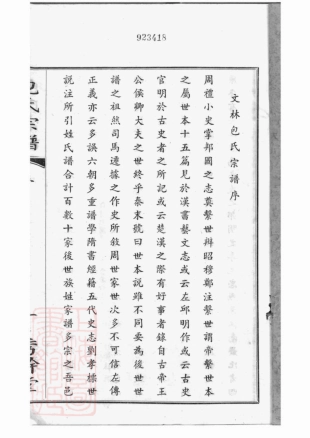 923418
文林包氏宗譜序
周禮小史掌邦國之志奠繫世辨昭穆鄭注繫世謂帝繫世本
之屬世本十五篇見於漢書藝文志或云左邱明作或云古史
官明於古史者之所記或云楚漢之際有好事者錄自古帝王
公侯卿大夫之世終乎秦末號曰世本說雖不同要為後世世
譜之祖然司馬遷據之作史所敘周世家世次多不可信左傳
正義亦云多誤六朝多重譜學隋書經籍五代史志劉孝標世
說注所引姓氏譜合計百數十家後世族姓家譜多宗之吾邑
包氏宗譜